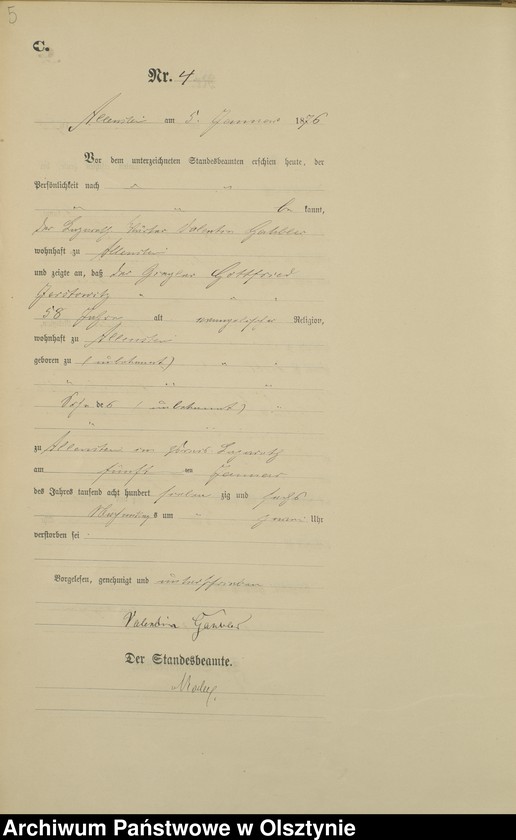 5
C.
Nr. 4
Allenstein am 5. Januar 1876
Vor dem unterzeichneten Standesbeamten erschien heute, der
Persönlichkeit nach
be kannt,
der Lazareth Wärter Valentin
wohnhaft zu Allenstein
und zeigte an, daß der Gottfried
58 Jahre alt evangelischer Religion,
wohnhaft zu Allenstein
geboren zu (unbekannt)
Sohn des (unbekannt)
zu Allenstein im Lazareth
am fünften Januar
des Jahres tausend acht hundert sieben zig und sechs
Nachmittags um Uhr
verstorben sei
Vorgelesen, genehmigt und unterschrieben
Valentin
Der Standesbeamte.
Archiwum Państwowe w Olsztynie